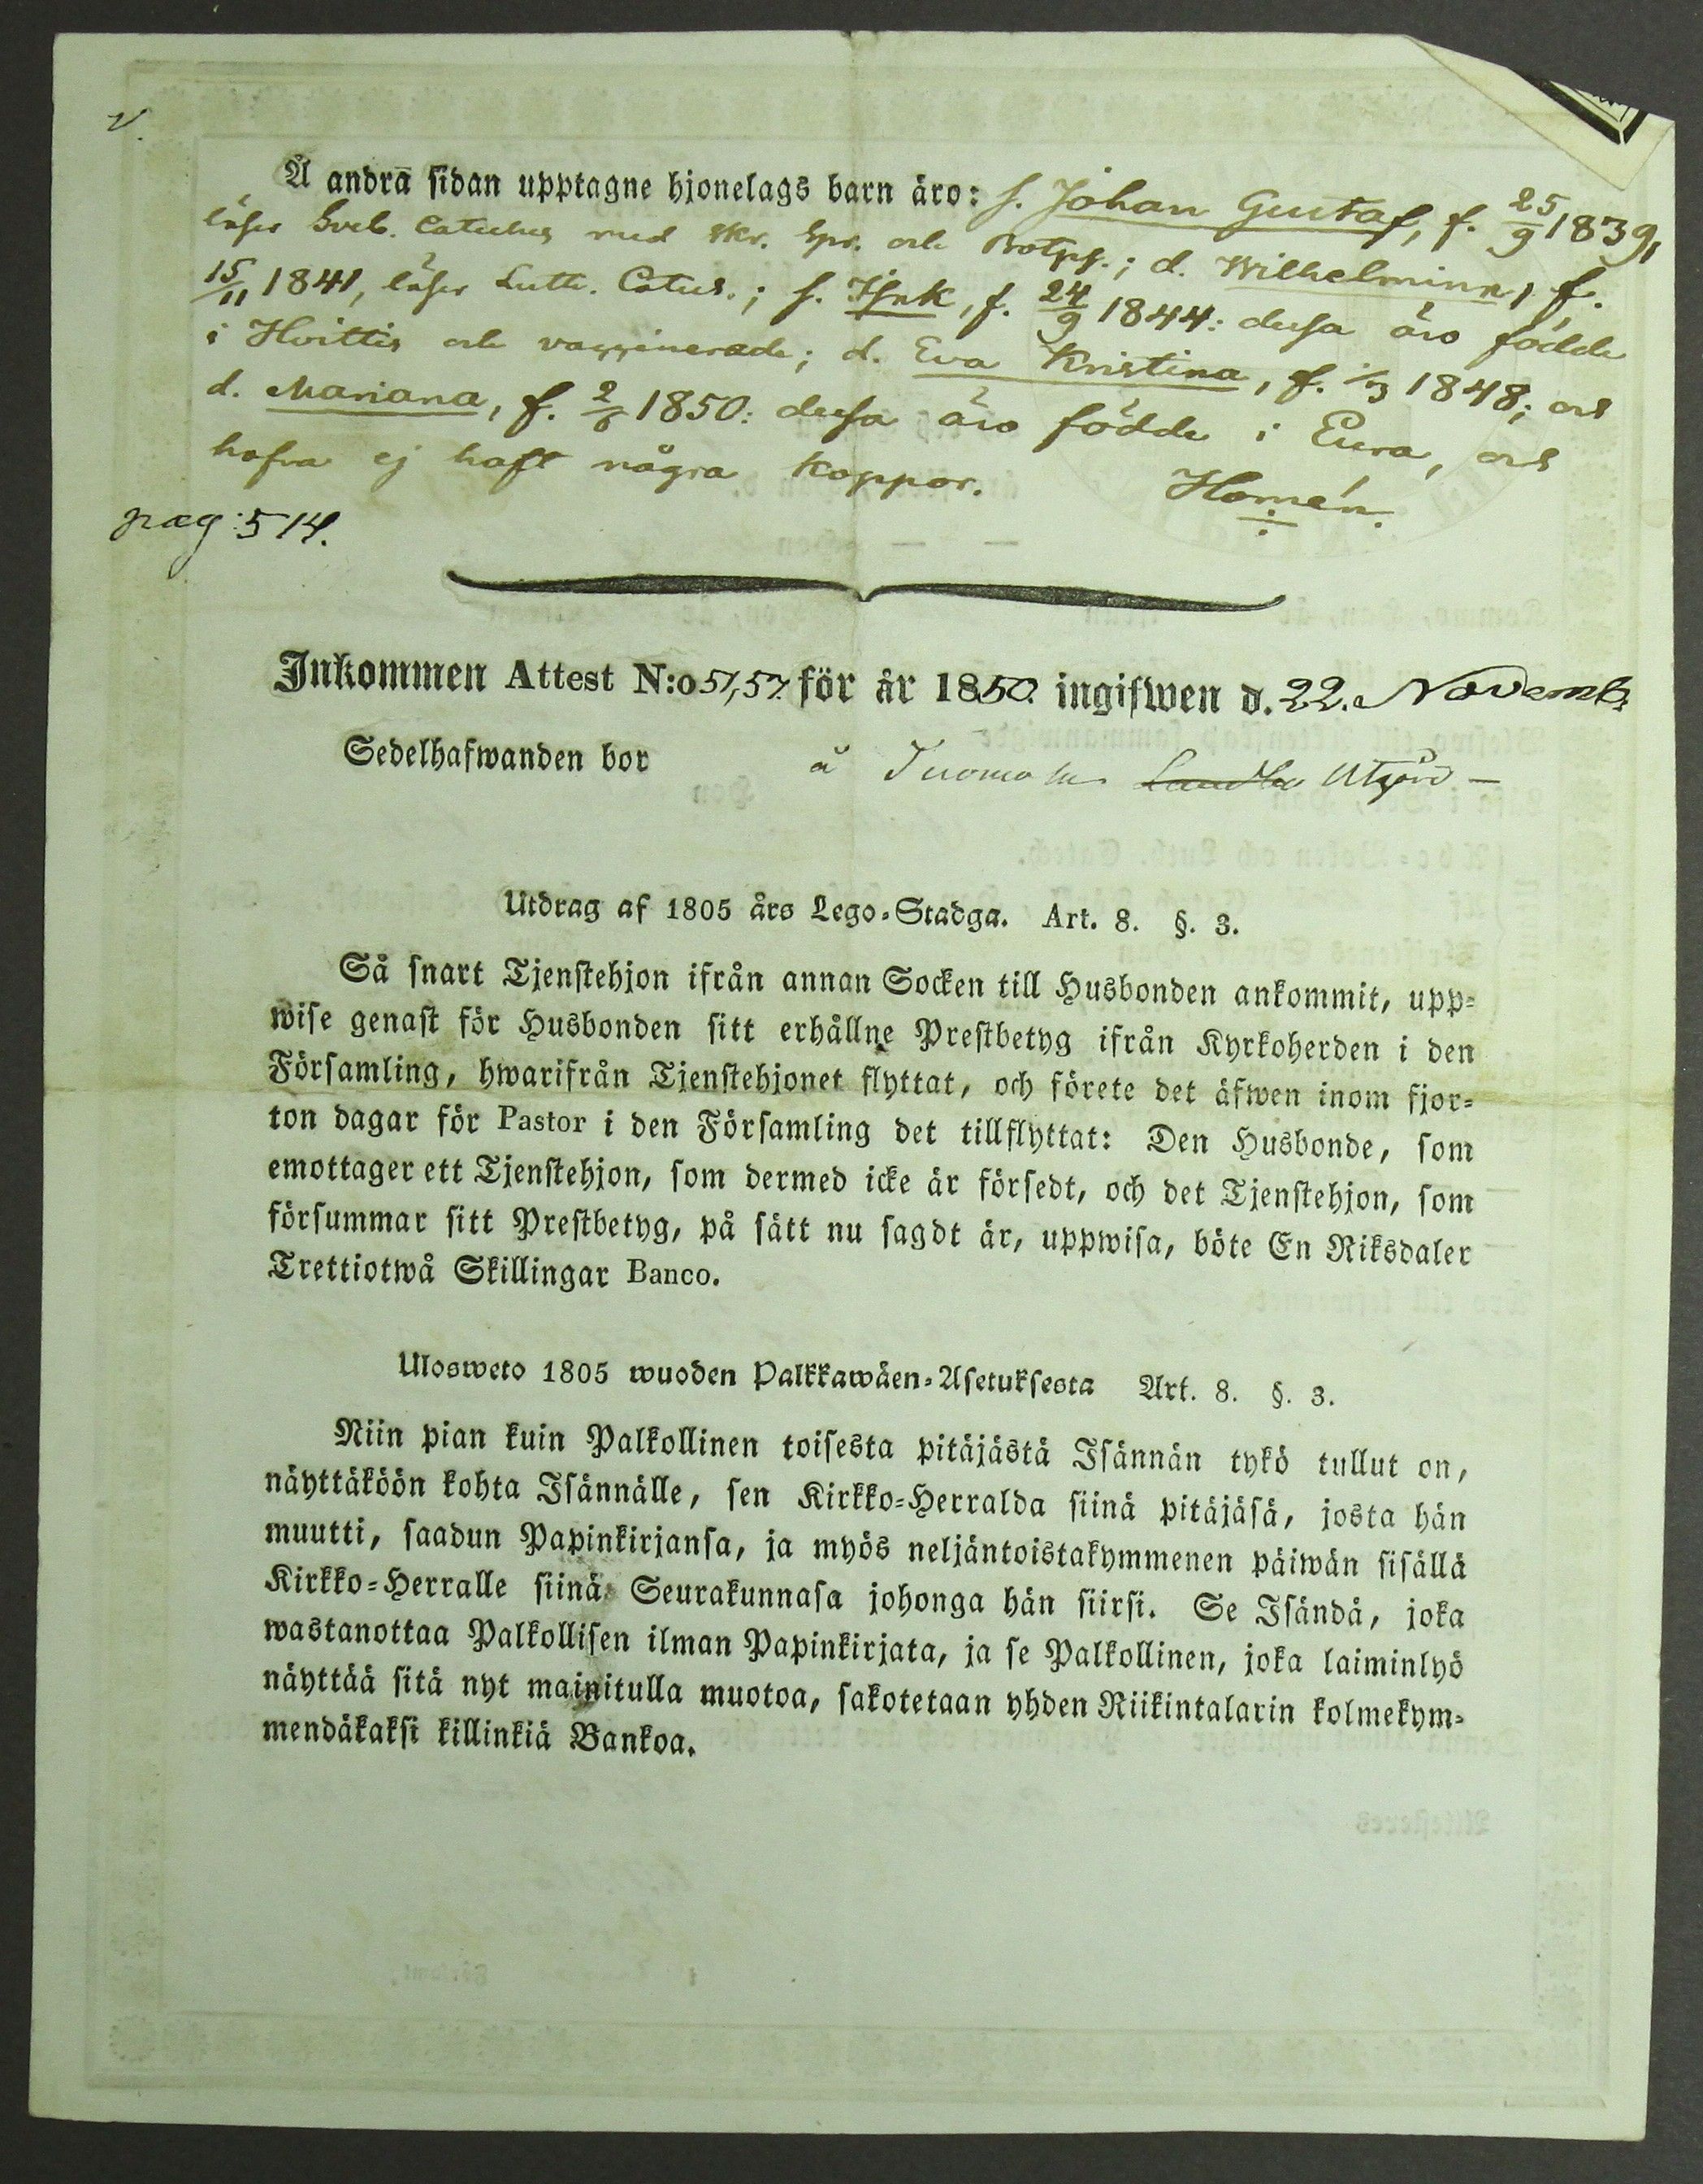 v.
Å andra sidan upptagne hjonelags barn äro: s. Johan Gustaf, f. 25/9 1839,
läser Sveb. Cateches med Skr. Spr. och Botps.; d. Wilhelmina, f.
15/11 1841, läser Luth. Catech.; s. Isak, f. 24/9 1844: dessa äro födde
i Hvittis och vaccinerade; d. Eva Kristina, f. 1/3 1848; och
d. Mariana, f. 2/8 1850: dessa äro födde i Eura, och
hafva ej haft några koppor. Homén.
pag: 514.
Inkommen Attest N:o 51,57. för år 1850 ingifwen d. 22. Novemb.
Sedelhafwanden bor å Tuomola Utgård –
Utdrag af 1805 års Lego-Stadga. Art. 8. §. 3.
Så snart Tjenstehjon ifrån annan Socken till Husbonden ankommit, upp-
wise genast för Husbonden sitt erhållne Prestbetyg ifrån Kyrkoherden i den
Församling, hwarifrån Tjenstehjonet flyttat, och förete det äfwen inom fjor-
ton dagar för Pastor i den Församling det tillflyttat: Den Husbonde, som
emottager ett Tjenstehjon, som dermed icke är försedt, och det Tjenstehjon, som
försummar sitt Prestbetyg, på sätt nu sagdt är, uppwisa, böte En Riksdaler
Trettiotwå Skillingar Banco.
Ulosweto 1805 wuoden Palkkawäen-Asetuksesta Art. 8. §. 3.
Niin pian kuin Palkollinen toisesta pitäjästä Isännän tykö tullut on,
näyttäköön kohta Isännälle, sen Kirkko-Herralda siinä pitäjäsä, josta hän
muutti, saadun Papinkirjansa, ja myös neljäntoistakymmenen päiwän sisällä
Kirkko-Herralle siinä Seurakunnasa johonga hän siirsi. Se Isändä, joka
wastanottaa Palkollisen ilman Papinkirjata, ja se Palkollinen, joka laiminlyö
näyttää sitä nyt mainitulla muotoa, sakotetaan yhden Riikintalarin kolmekym-
mendäkaksi killinkiä Bankoa.